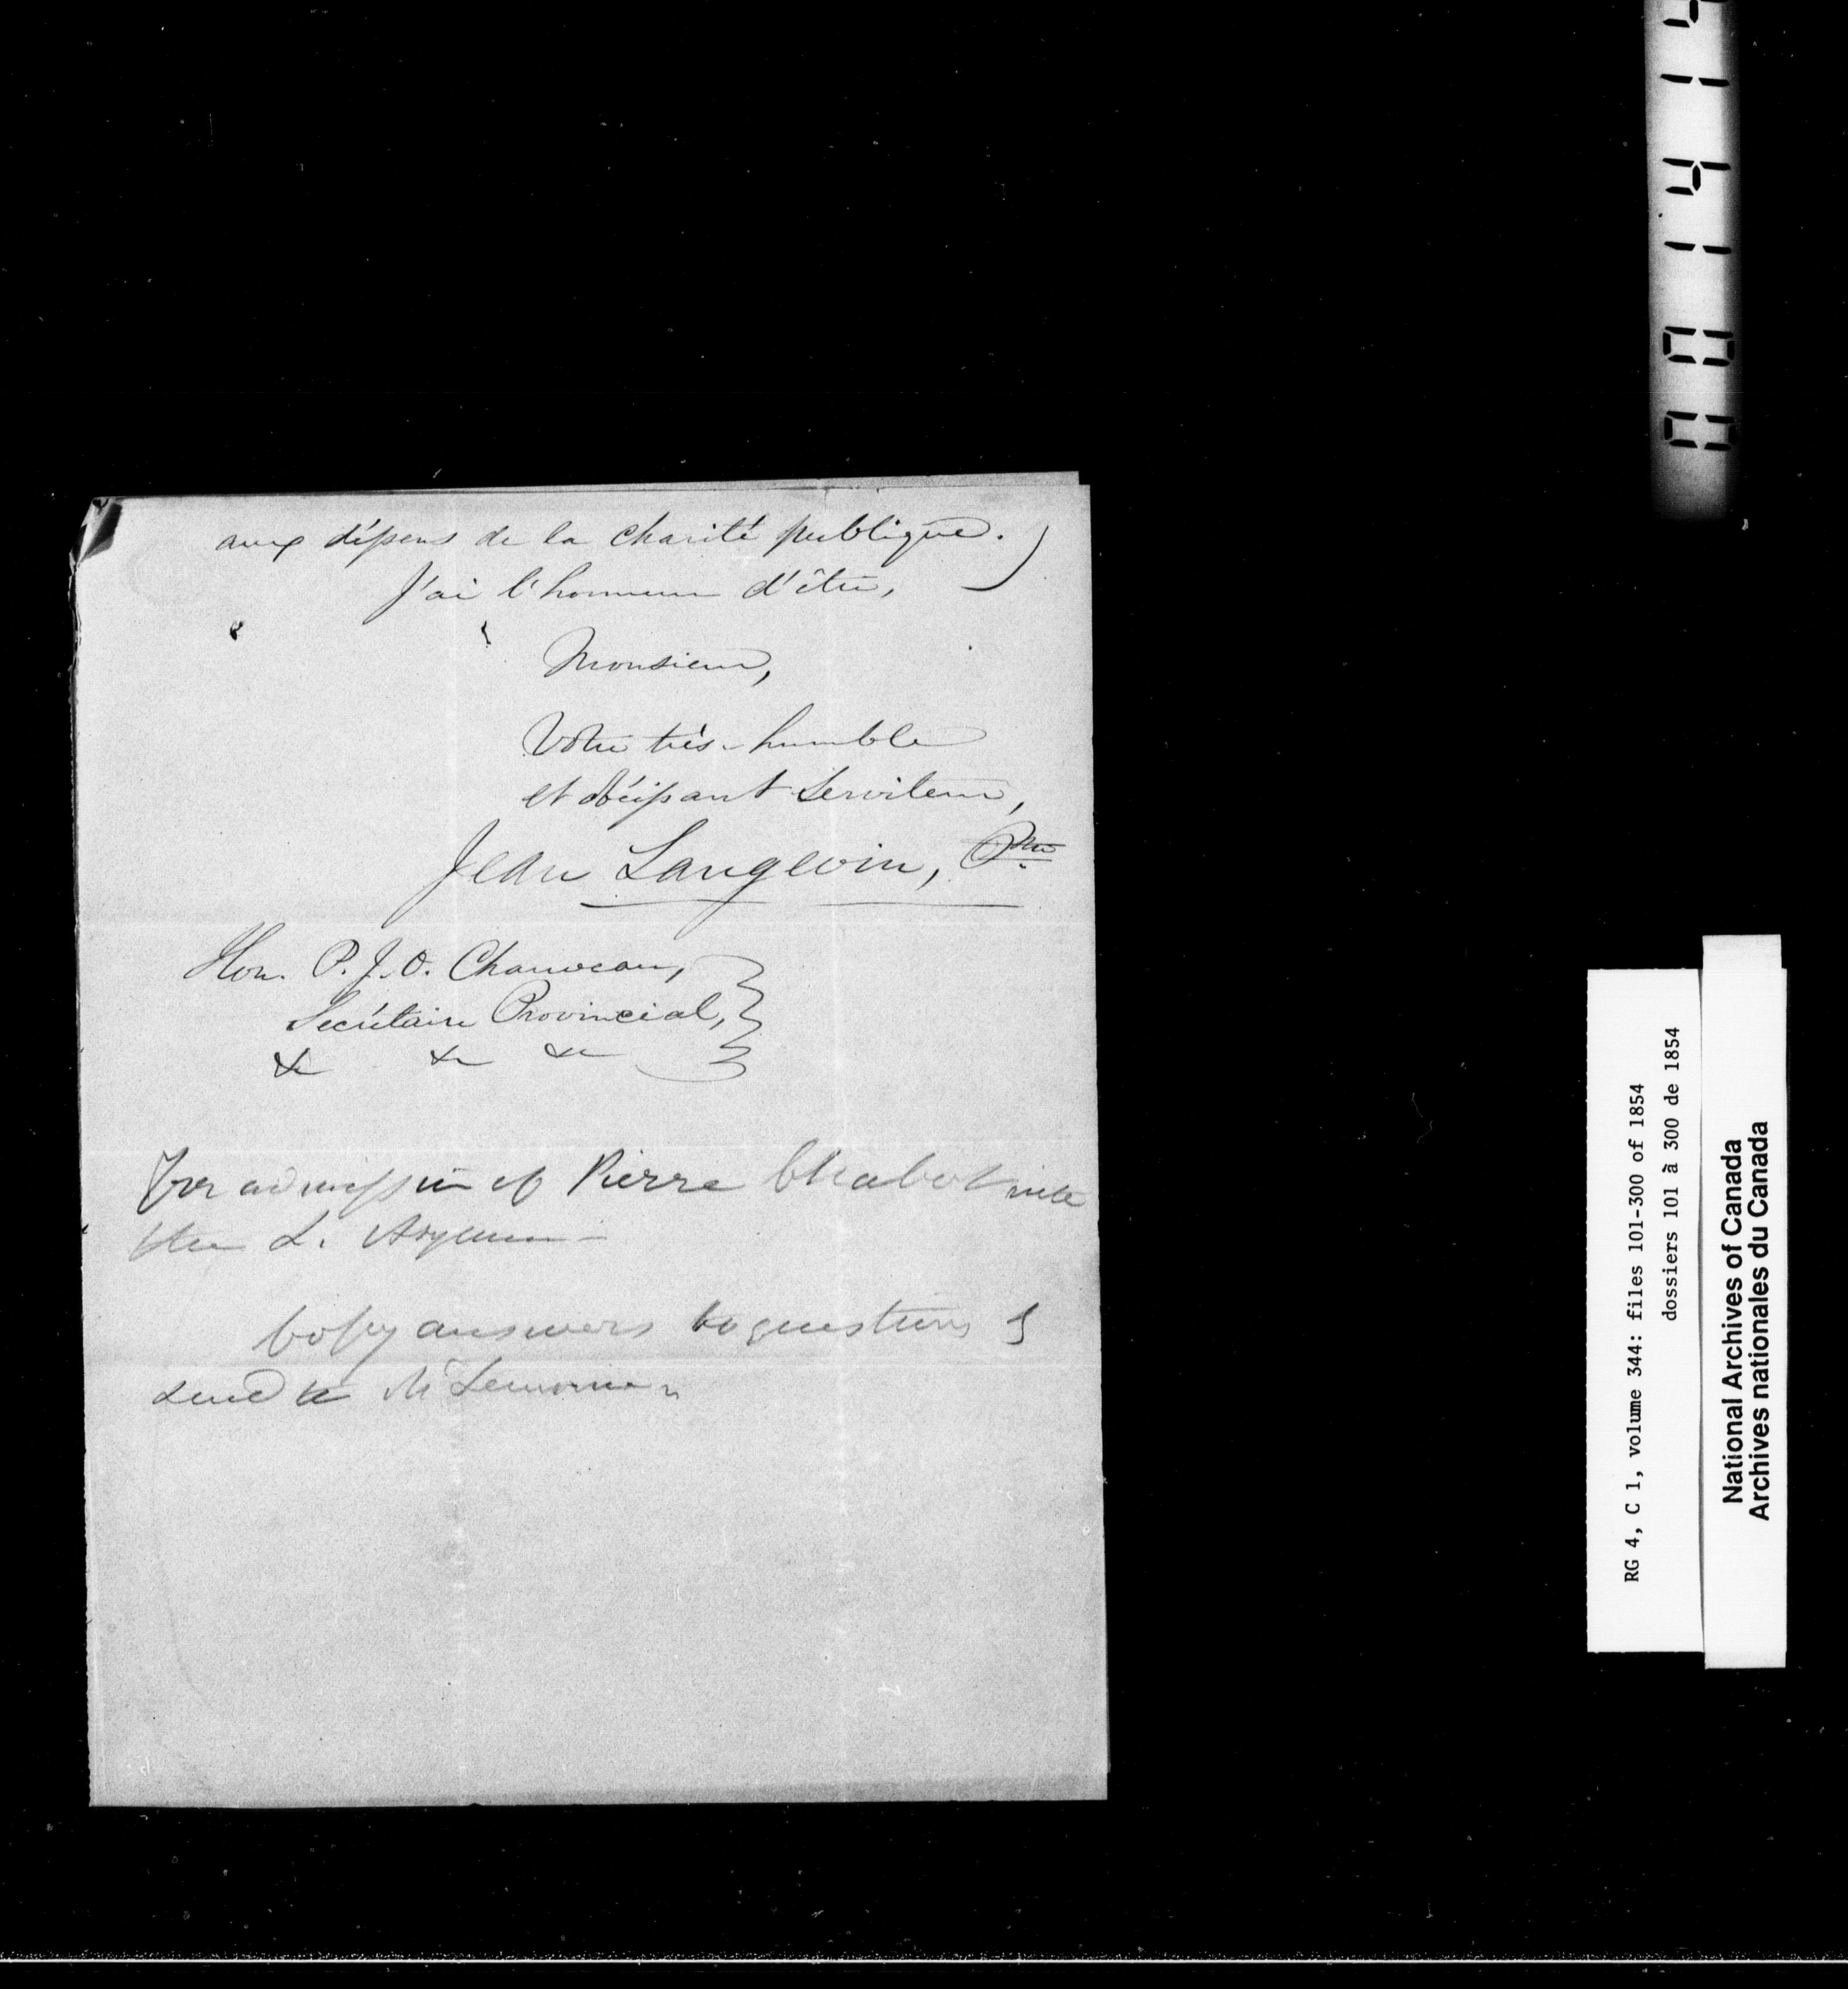 aux dépens de la charité publique.)
J'ai l'honneur d'être,
Monsieur,
Votre très-humble
et obéissant Serviteur,
Jean Langevin, Ptre
Hon. P. J. O. Chauveau,
Secrétaire Provincial,
&c &c &c
For admission of Pierre Chabot into
the L. Asylum -
Copy answers to questions &
send to Mr Lemoine
RG 4, C 1, volume 344: files 101-300 of 1854
dossiers 101 à 300 de 1854
National Archives of Canada
Archives nationales du Canada